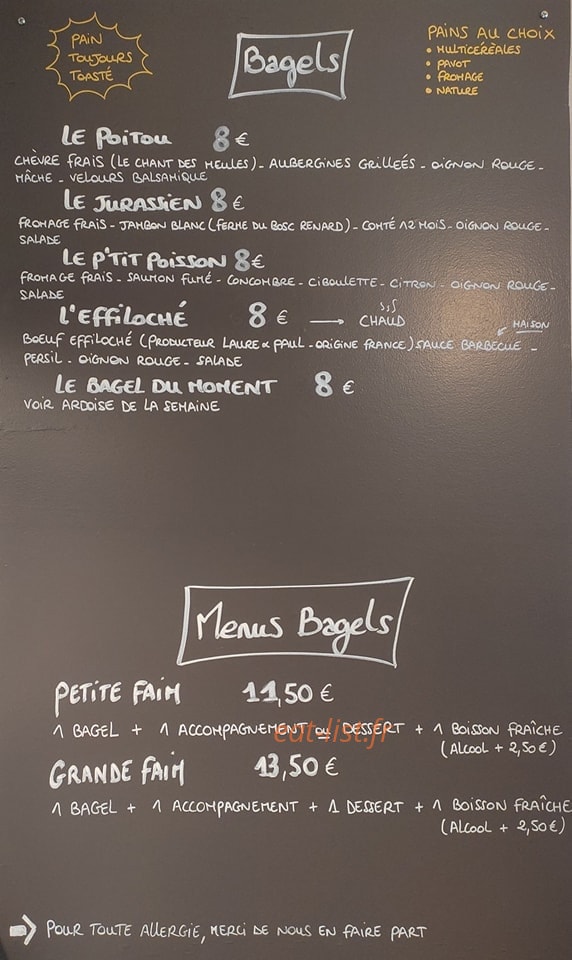 PAIN
TOUJOURS
TOASTÉ
Bagels
PAINS AU CHOIX
• MULTICÉRÉALES
• PAVOT
• FROMAGE
• NATURE
LE POITOU 8 €
CHÈVRE FRAIS (LE CHANT DES MEULES) - AUBERGINES GRILLEÉS - OIGNON ROUGE -
MÂCHE - VELOURS BALSAMIQUE
LE JURASSIEN 8 €
FROMAGE FRAIS - JAMBON BLANC (FERME DU BOSC RENARD) - COMTÉ 12 MOIS - OIGNON ROUGE -
SALADE
LE P'TIT POISSON 8 €
FROMAGE FRAIS - SAUMON FUMÉ - CONCOMBRE - CIBOULETTE - CITRON - OIGNON ROUGE -
SALADE
L'EFFILOCHÉ 8 € → CHAUD
MAISON
BOEUF EFFILOCHÉ (PRODUCTEUR LAURE & PAUL - ORIGINE FRANCE) SAUCE BARBECUE -
PERSIL - OIGNON ROUGE - SALADE
LE BAGEL DU MOMENT 8 €
VOIR ARDOISE DE LA SEMAINE
Menus Bagels
PETITE FAIM 11,50 €
1 BAGEL + 1 ACCOMPAGNEMENT OU DESSERT + 1 BOISSON FRAÎCHE
eat-list.fr
(ALCOOL + 2,50 €)
GRANDE FAIM 13,50 €
1 BAGEL + 1 ACCOMPAGNEMENT + 1 DESSERT + 1 BOISSON FRAÎCHE
(ALCOOL + 2,50 €)
POUR TOUTE ALLERGIE, MERCI DE NOUS EN FAIRE PART